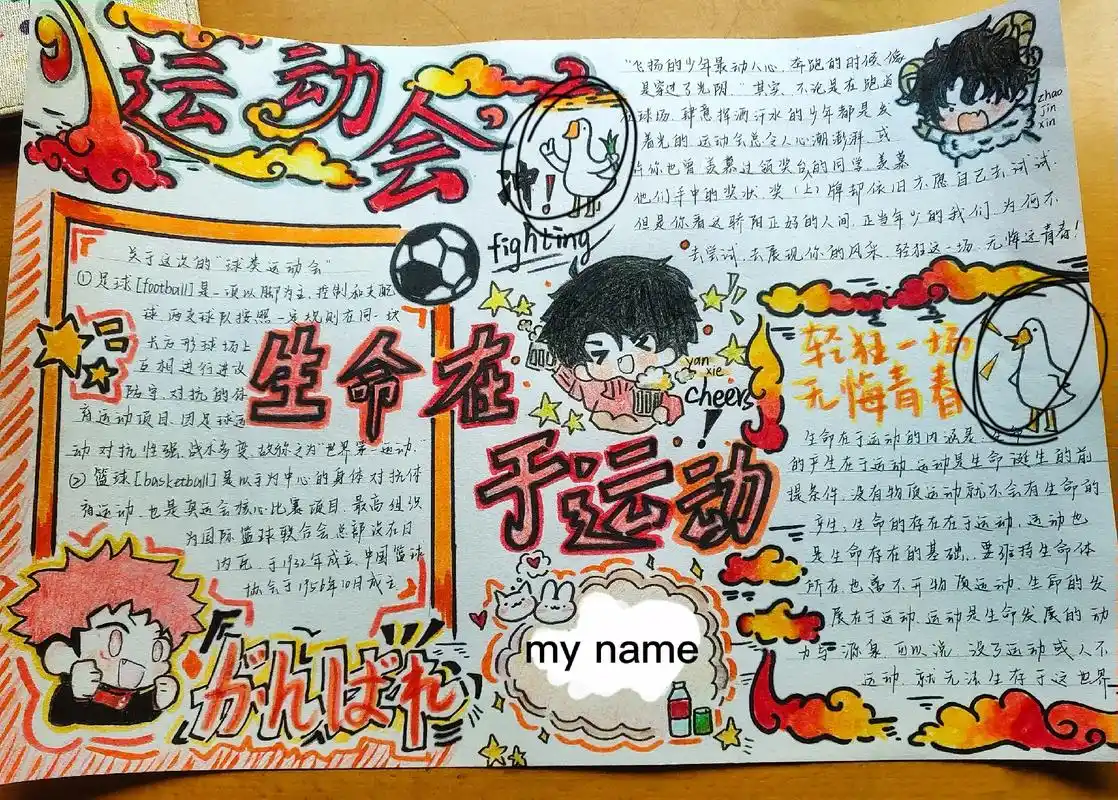 运动会
冲!
fighting
"飞扬的少年最动人心,奔跑的时候像
是穿过了光阴。"其实,不论是在跑道
球场,肆意挥洒汗水的少年都是发
着光的,运动会总令人心潮澎湃,或
许你也曾羡慕过领奖台的同学,羡慕
他们手中的奖状、奖(上)牌却依旧不愿自己去试试.
但是你看这骄阳正好的人间,正当年少的我们,为何不
去尝试,去展现你的风采,轻狂这一场,无悔这青春!
zhao
jin
xin
关于这次的"球类运动会"
①足球[football]是一项以脚为主,控制和支配
球,两支球队按照一定规则在同一块
长方形球场上
互相进行进攻
防守,对抗的体
育运动项目,因足球运
动对抗性强,战术多变,故称之为"世界第一运动."
②篮球[basketball]是以手为中心的身体对抗体
育运动,也是奥运会核心比赛项目,最高组织
为国际篮球联合会,总部设在日
内瓦,于1932年成立,中国篮球
协会于1956年10月成立
生命在
于运动
yan
xie
cheers
!
轻狂一场
无悔青春
生命在于运动的内涵是:
的产生在于运动,运动是生命诞生的前
提条件,没有物质运动就不会有生命的
产生,生命的存在在于运动,运动也
是生命存在的基础,要维持生命体
所在也离不开物质运动,生命的发
展在于运动,运动是生命发展的动
力与源泉,可以说,没了运动或人不
运动,就无法生存于这世界
がんばれ
my name